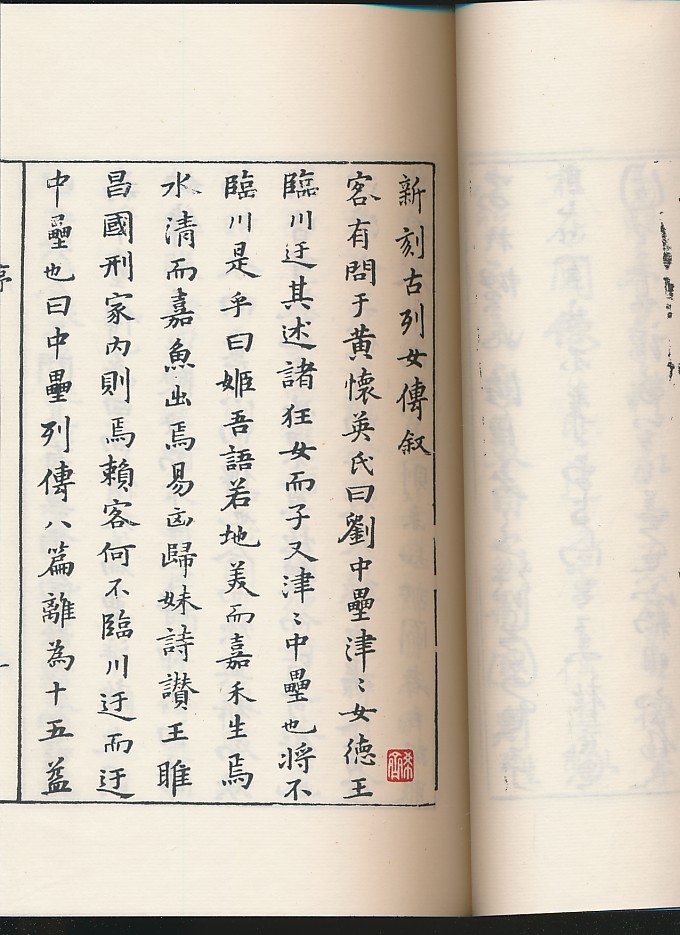 新刻古列女傳叙
客有問于黄懷英氏曰劉中壘津〻女德王
臨川迂其述諸狂女而子又津〻中壘也將不
臨川是乎曰姬吾語若地美而嘉禾生焉
水清而嘉魚出焉易函歸妹詩讃王雎
昌國刑家内則焉賴客何不臨川迂而迂
中壘也曰中壘列傳八篇離為十五益
序
一